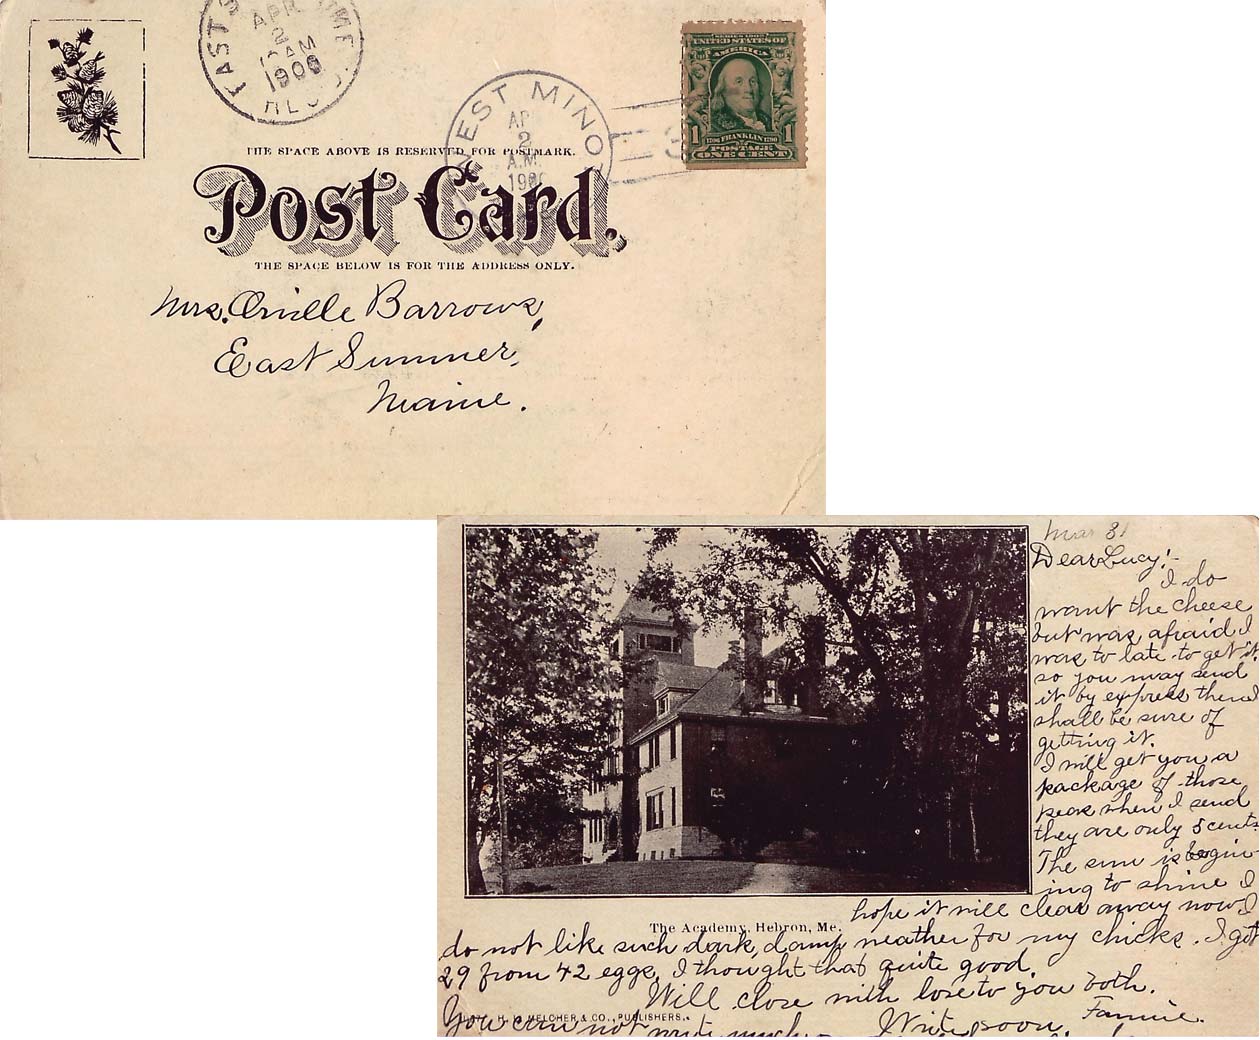 APR
2
1906
WEST MINOT
2
A.M.
SERIES 1902
UNITED STATES OF
AMERICA
1 FRANKLIN 1
POSTAGE
ONE CENT
THE SPACE ABOVE IS RESERVED FOR POSTMARK.
Post Card.
THE SPACE BELOW IS FOR THE ADDRESS ONLY.
Mrs. Orville Barrows,
East Sumner,
Maine.
Mar 31
Dear Lucy:-
I do
want the cheese
but was afraid I
was to late to get it
so you may send
it by express then I
shall be sure of
getting it.
I will get you a
package of those
peas when I send
they are only 5 cents
The sun is begin-
ing to shine I
hope it will clear away now I
The Academy, Hebron, Me.
do not like such dark, damp weather for my chicks. I got
29 from 42 eggs, I thought that quite good.
Will close with love to you both.
Fannie.
H. MELCHER & CO., PUBLISHERS.
You can not write much Write soon.